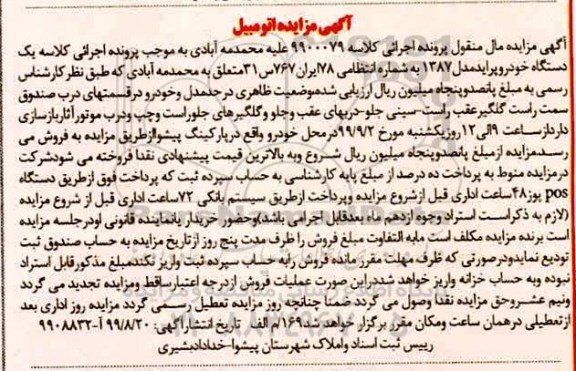 آگهی مزایده اتومبیل
آگهی مزایده مال منقول پرونده اجرائی کلاسه ۹۹۰۰۰۷۹ علیه محمدمه آبادی به موجب پرونده اجرائی کلاسه یک
دستگاه خودروپرایدمدل۱۳۸۷ به شماره انتظامی ۷۸ایران۷۶۷س۳۱متعلق به محمدمه آبادی که طبق نظر کارشناس
رسمی به مبلغ پانصدوپنجاه میلیون ریال ارزیابی شده،وضعیت ظاهری درحدمدل وخودرو درقسمتهای درب صندوق
سمت راست گلگیرعقب راست-سینی جلو-دربهای عقب وجلو وگلگیرهای جلوراست وچپ ودرب موتورآثاربازسازی
داردازساعت ۹الی۱۲روزیکشنبه مورخ ۹۹/۹/۲درمحل خودرو واقع درپارکینگ پیشواازطریق مزایده به فروش می
رسدمزایده ازمبلغ پانصدوپنجاه میلیون ریال شروع وبه بالاترین قیمت پیشنهادی نقدا فروخته می شودشرکت
درمزایده منوط به پرداخت ده درصد از مبلغ پایه کارشناسی به حساب سپرده ثبت که پرداخت فوق ازطریق دستگاه
pos پوز۴۸ساعت اداری قبل ازشروع مزایده وپرداخت ازطریق سیستم بانکی ۷۲ساعت اداری قبل از شروع مزایده
(لازم به ذکراست استراد وجوه ازدهم ماه بعدقابل اجرامی باشد)وحضورخریدار یانماینده قانونی اودرجلسه مزایده
است برنده مزایده مکلف است مابه التفاوت مبلغ فروش را ظرف مدت پنج روز ازتاریخ مزایده به حساب صندوق ثبت
تودیع نمایدودرصورتی که ظرف مهلت مقررمانده فروش رابه حساب سپرده ثبت واریز نکندمبلغ مذکورقابل استراد
نبوده وبه حساب خزانه واریز خواهد شددراین صورت عملیات فروش ازدرجه اعتبارساقط ومزایده تجدید می گردد
ونیم عشروحق مزایده نقدا وصول می گردد ضمنا چنانچه روز مزایده تعطیل رسمی گردد مزایده روز اداری بعد
ازتعطیلی درهمان ساعت ومکان مقرر برگزار خواهد شد.۱۶۹/م الف تاریخ انتشارآگهی: ۹۹/۸/۲۰ آ-۹۹۰۸۸۳۲
رییس ثبت اسناد واملاک شهرستان پیشوا-خدادادبشیری